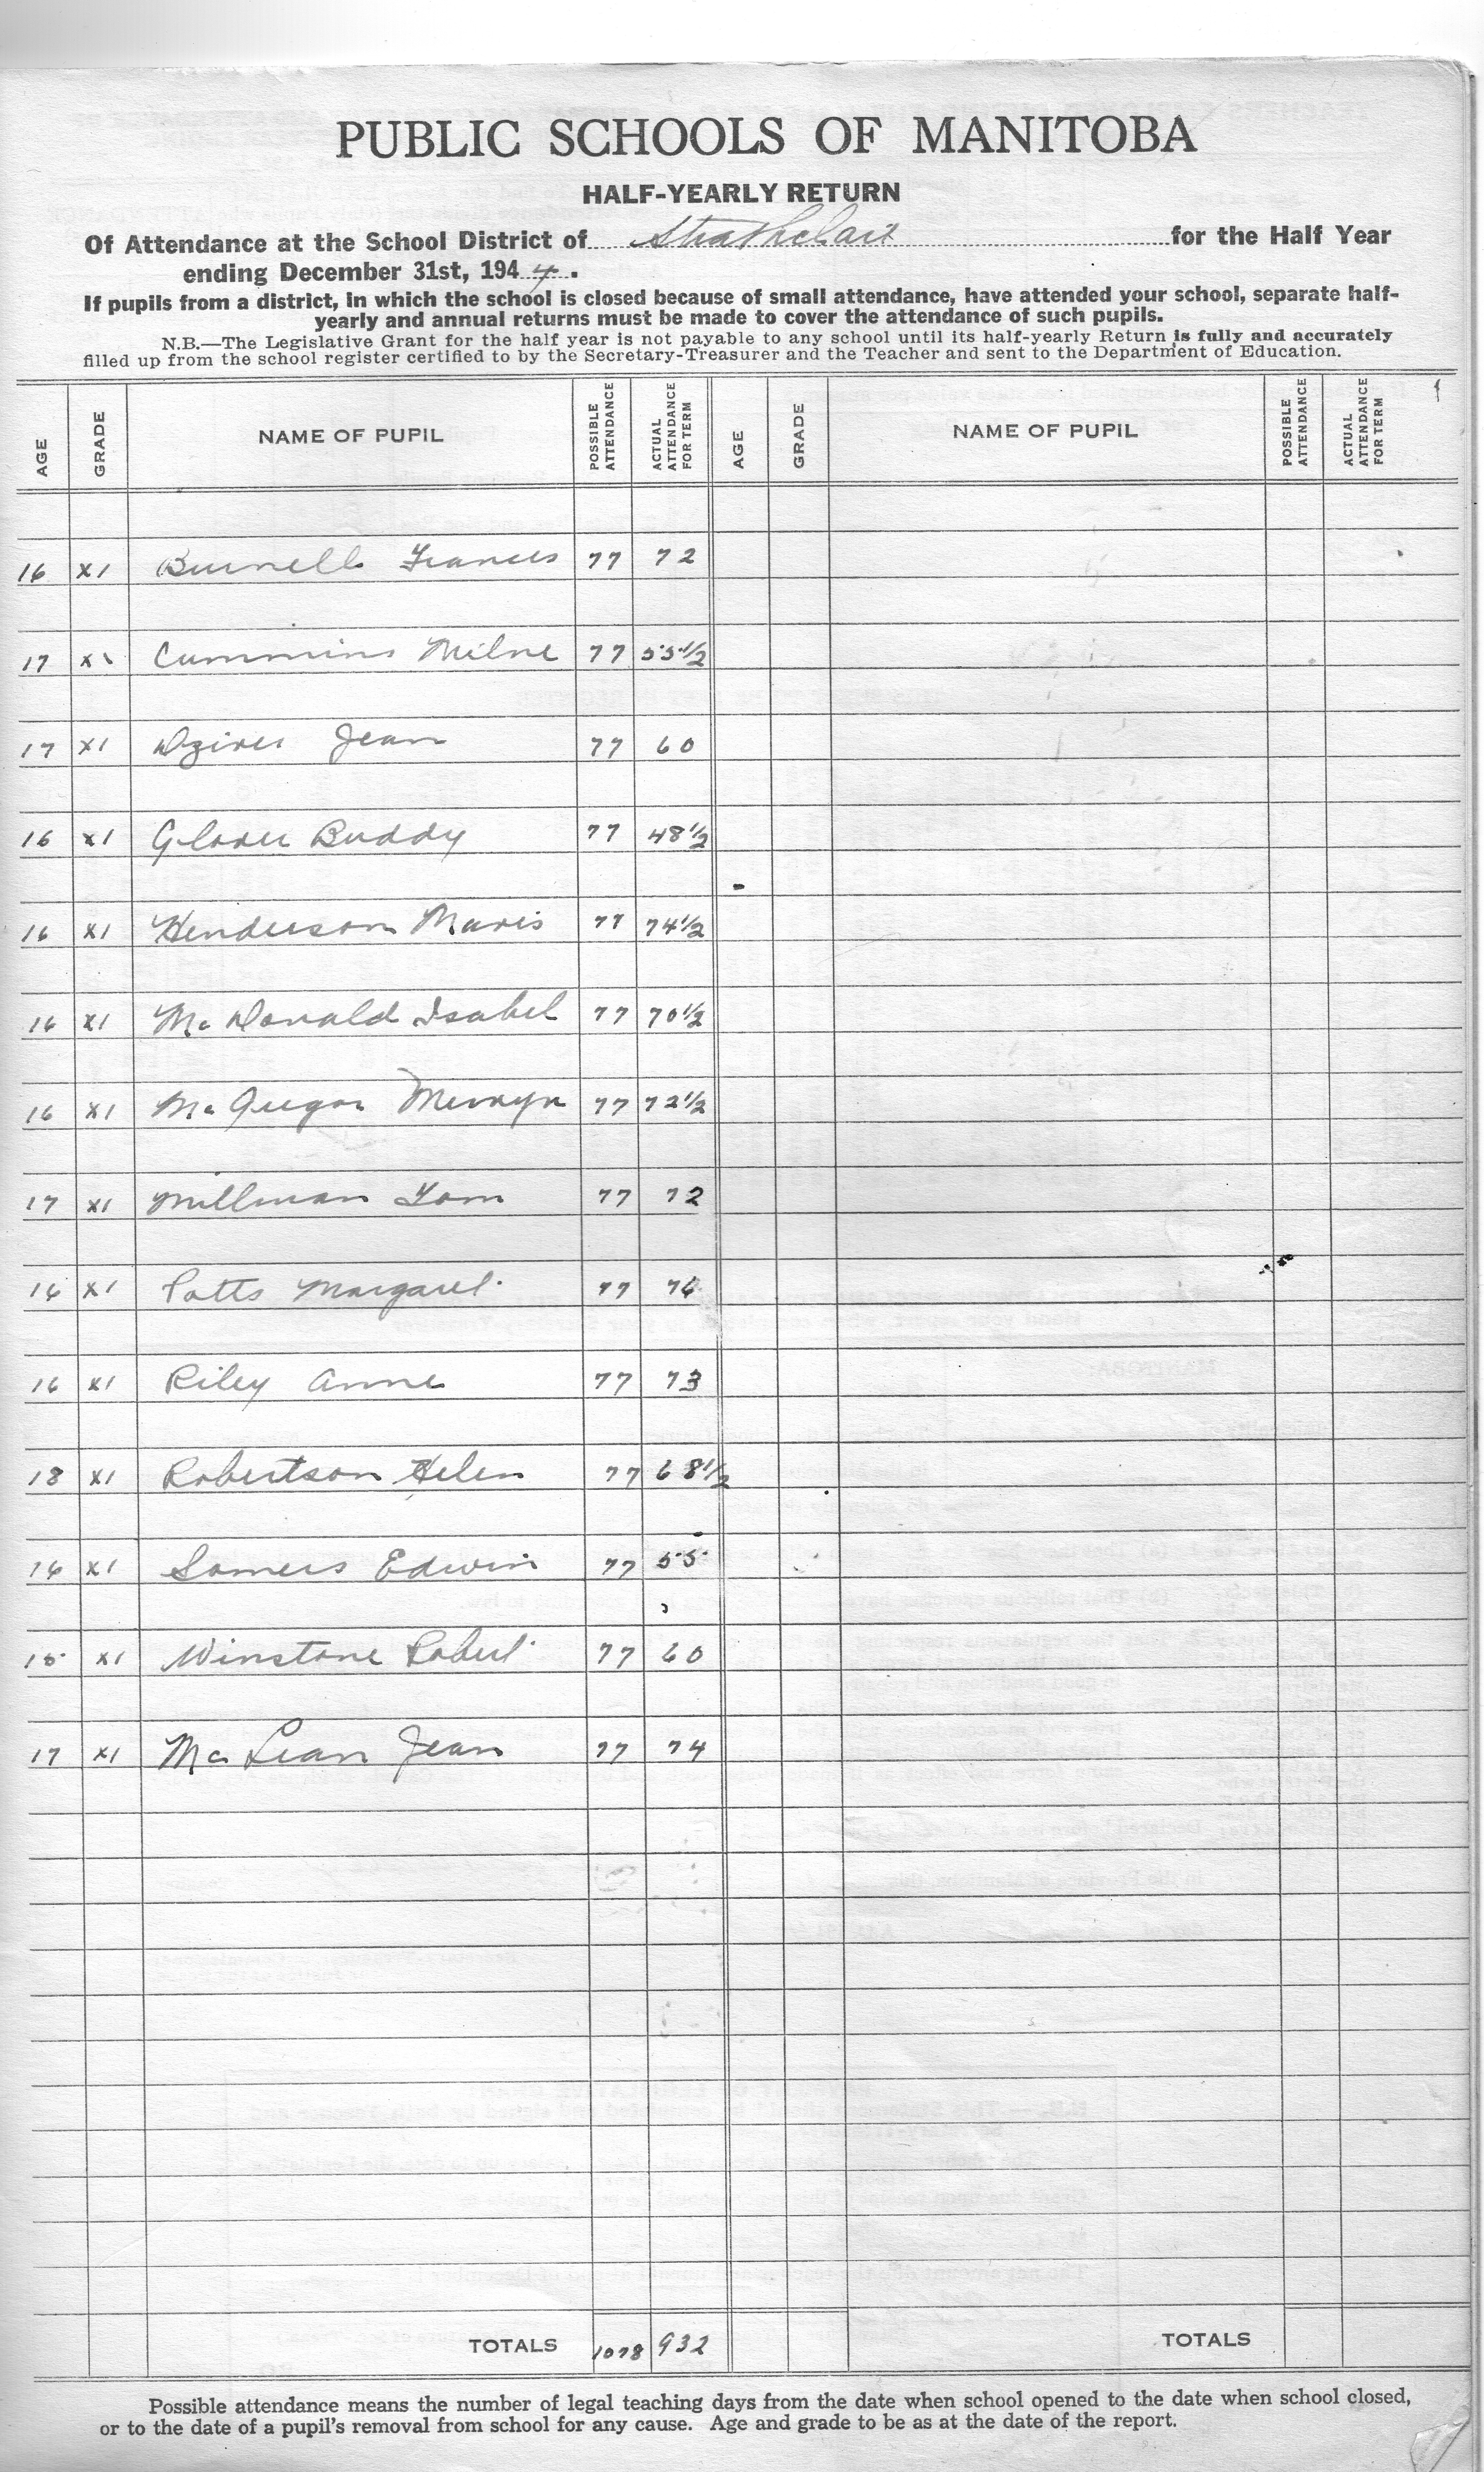 PUBLIC SCHOOLS OF MANITOBA
HALF-YEARLY RETURN
Of Attendance at the School District of Strathclair for the Half Year
ending December 31st, 1944.
If pupils from a district, in which the school is closed because of small attendance, have attended your school, separate half-
yearly and annual returns must be made to cover the attendance of such pupils.
N.B.—The Legislative Grant for the half year is not payable to any school until its half-yearly Return is fully and accurately
filled up from the school register certified to by the Secretary-Treasurer and the Teacher and sent to the Department of Education.
AGE GRADE NAME OF PUPIL POSSIBLE ATTENDANCE ACTUAL ATTENDANCE FOR TERM AGE GRADE NAME OF PUPIL POSSIBLE ATTENDANCE ACTUAL ATTENDANCE FOR TERM
16 XI Burnell Frances 77 72
17 XI Cummins Milne 77 55½
17 XI Jean 77 60
16 XI Glover Buddy 77 48½
16 XI Henderson Mavis 77 74½
16 XI McDonald Isabel 77 70½
16 XI McGregor Mervyn 77 72½
17 XI Millman Tom 77 72
16 XI Potts Margaret 77 76
16 XI Riley Anne 77 73
18 XI Robertson Helen 77 68½
16 XI Somers Edwin 77 55
15 XI Winstone Robert 77 60
17 XI McLean Jean 77 74
TOTALS 1078 932 TOTALS
Possible attendance means the number of legal teaching days from the date when school opened to the date when school closed,
or to the date of a pupil's removal from school for any cause. Age and grade to be as at the date of the report.